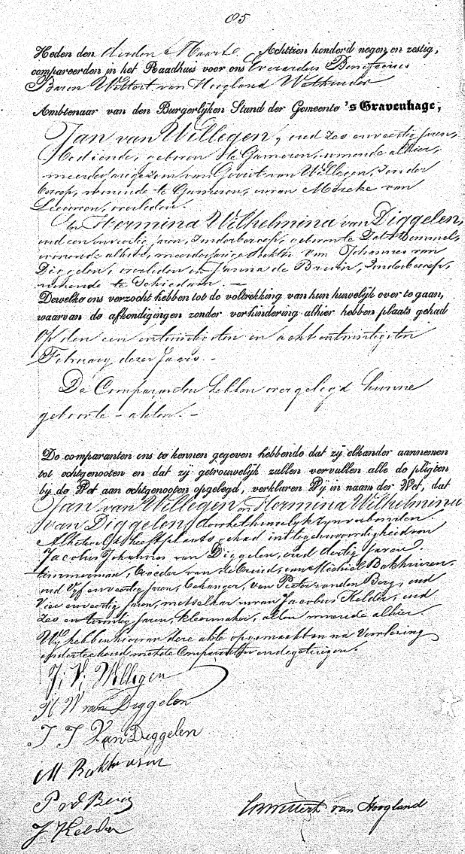 Heden den derden Maart Achttien honderd negen en zestig,
compareerden in het Raadhuis voor ons Everardus Bonifacius
Baron Wittert van Hoogland Wethouder
Ambtenaar van den Burgerlijken Stand der Gemeente 's Gravenhage,
Jan van Willegen, oud zes en veertig jaren,
bediende, geboren te Gameren, wonende alhier,
meerderjarige zoon van Govert van Willegen, zonder
beroep, wonende te Gameren, en van Marike van
overleden.
En Hermina Wilhelmina van Diggelen,
oud een en veertig jaren, zonder beroep, geboren te Zalt Bommel,
wonende alhier, meerderjarige dochter van Johannes van
Diggelen, overleden en Janna de Bruin, zonder beroep,
wonende te Schiedam.
Dewelke ons verzocht hebben tot de voltrekking van hun huwelijk over te gaan,
waarvan de afkondigingen zonder verhindering alhier hebben plaats gehad
Op den een en twintigsten en acht en twintigsten
February dezer Jaars.
De Comparanten hebben overgelegd hunne
geboorte-akten.
De comparanten ons te kennen gegeven hebbende dat zij elkander aannemen
tot echtgenooten en dat zij getrouwelijk zullen vervullen alle de pligten
bij de Wet aan echtgenooten opgelegd, verklaren Wij in naam der Wet, dat
Jan van Willegen en Hermina Wilhelmina
van Diggelen, door het huwelijk zijn verbonden.
Al hetwelk heeft plaats gehad in tegenwoordigheid van
Jacobus Johannes van Diggelen, oud dertig jaren
timmerman, broeder van de bruid, van Michiel Bakhuizen,
oud vijf en veertig jaren, behanger, van Pieter van den Berg, oud
vier en veertig jaren, metselaar en van Jacobus Kelder, oud
zes en twintig jaren, kleermaker, allen wonende alhier.
Wij hebben hiervan deze akte opgemaakt en na voorlezing
onderteekend met de Comparanten en de getuigen.
J. V. Willegen
H W van Diggelen
J J Van Diggelen
M Bakhuizen
P vd Berg
J Kelder
Wittert van Hoogland